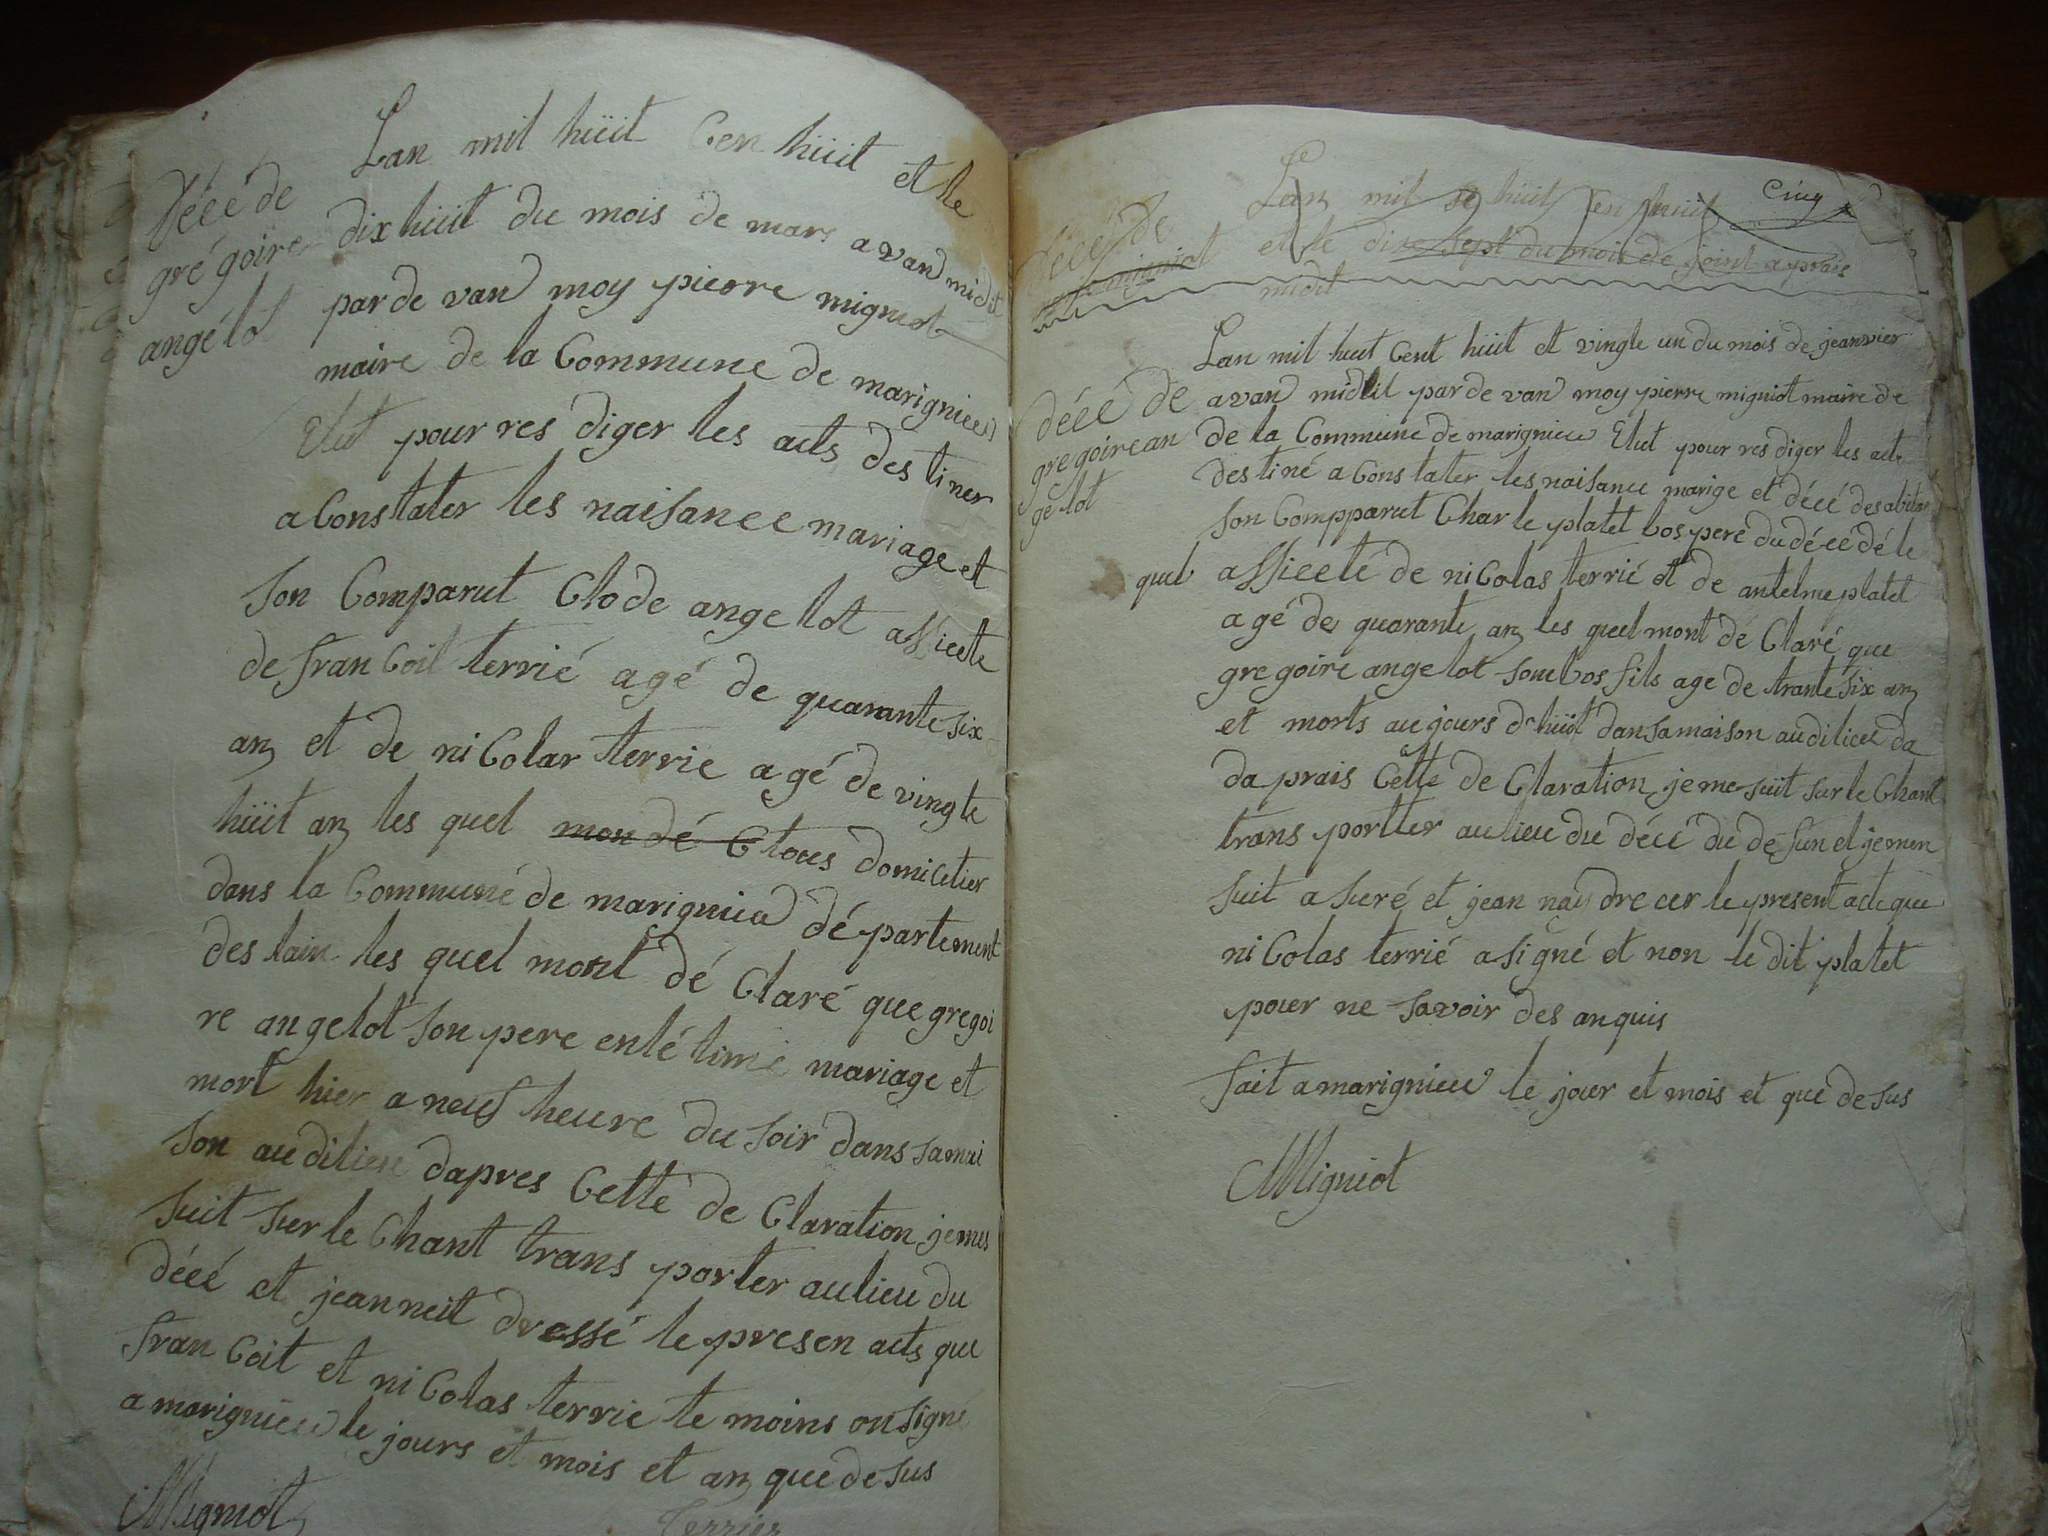 décé de
grégoire
angélot
Lan mil hüit Cen hüit et le
dix hüit du mois de mars avan midit
par de van moy pierre migniot
maire de la Commune de marignieu
Elut pour res diger les acts des tiner
a Cons tater les naisance mariage et
son Comparut Clode angelot assicete
de fran Coit terrié agé de quarante six
an et de ni Colas terrie agé de vingte
hüit an les quel mon dé C tous domicilier
dans la Commune de marignieu dé partement
des lain les quel mont dé Claré que gregoi
re angelot son pere enlé time mariage et
mort hier a neuf heure du soir dans samai
son audilieu dapres Cette de Claration je mes
suit sur le Chant trans porter aulieu du
décé et jean neit dressé le presen acts que
fran Coit et ni Colas terrie te moins on signé
a marignieu le jours et mois et an que de sus
Migniot
Terrier
Cinq
Lan mil se hüit Cen hüit
décé de
migniot
et le dixe sept du mois de join a prais
midit
Lan mil huit Cent hüit et vingte un du mois de jeanvier
décé de
gregoire an
gelot
avan midit par de van moy pierre migniot maire de
de la Commune de marignieu Elut pour res diger les acts
des tiné a Cons tater les naisance marige et décé des abitan
son Compparut Charle platet bos pere du décé dé le
quel assicete de ni Colas terrié et de antelme platet
agé de quarante an les quel mont de Claré que
gregoire angelot son bos fils age de trante six an
et morts au jours d'hüit dans samaison audilieu da
da prais Cette de Claration je me suit sur le Chant
trans portter aulieu du décé du defun et jemen
suit a suré et jean nay dre cer le present acte que
ni Colas terrié a signé et non le dit platet
pour ne savoir des an quis
fait a marignieu le jour et mois et que de sus
Migniot